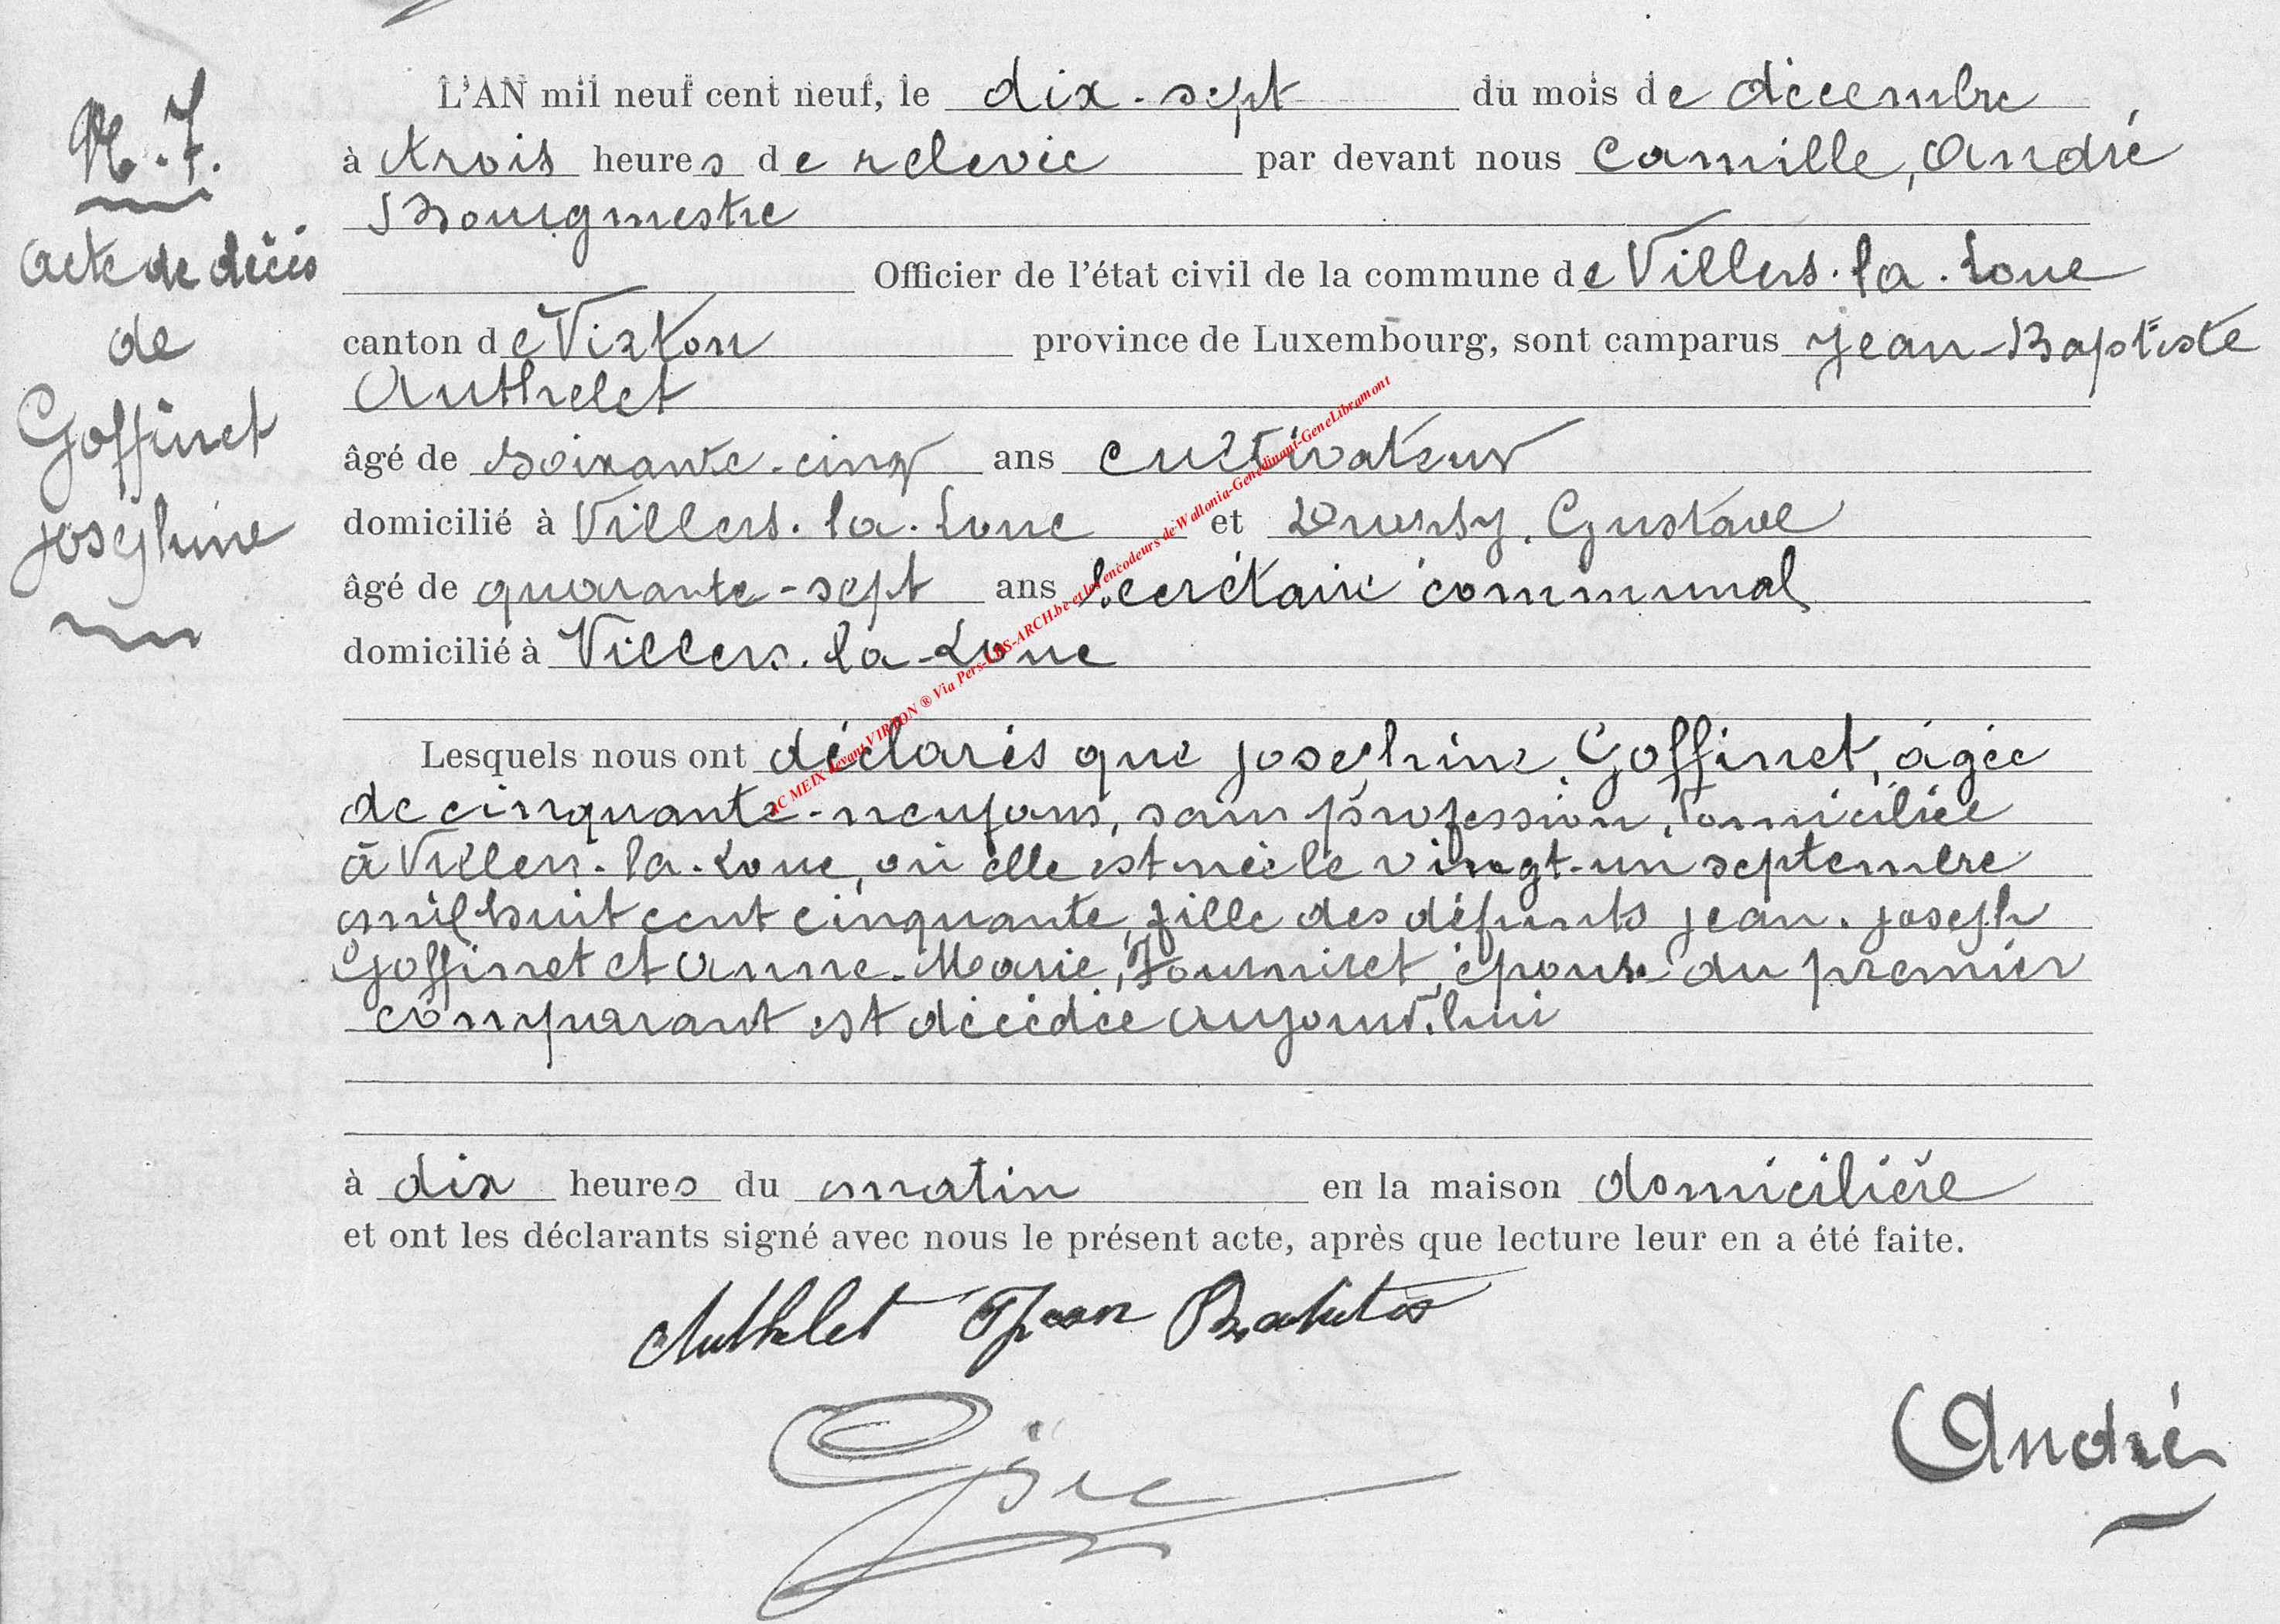 N. 7.
acte de décès
de
Goffinet
Joséphine
L'AN mil neuf cent neuf, le dix-sept du mois de décembre
à trois heures de relevée par devant nous Camille, André
Bourgmestre
Officier de l'état civil de la commune de Villers-la-Loue
canton de Virton province de Luxembourg, sont camparus Jean-Baptiste
Authelet
âgé de soixante-cinq ans cultivateur
domicilié à Villers-la-Loue et Gustave
âgé de quarante-sept ans Secrétaire communal
domicilié à Villers-la-Loue
Lesquels nous ont déclarés que Joséphine Goffinet, âgée
de cinquante-neuf ans, sans profession, domiciliée
à Villers-la-Loue, où elle est née le vingt-un septembre
mil huit cent cinquante, fille des défunts Jean-Joseph
Goffinet et Anne-Marie, Fourniret, épouse du premier
comparant est décédée aujourd'hui
à dix heures du matin en la maison domicilière
et ont les déclarants signé avec nous le présent acte, après que lecture leur en a été faite.
Authelet Jean Baptiste
André
AC MEIX devant VIRTON ® Via Pers-LDS-ARCH.be et les encodeurs de Wallonia-Genedinant-GeneLibramont